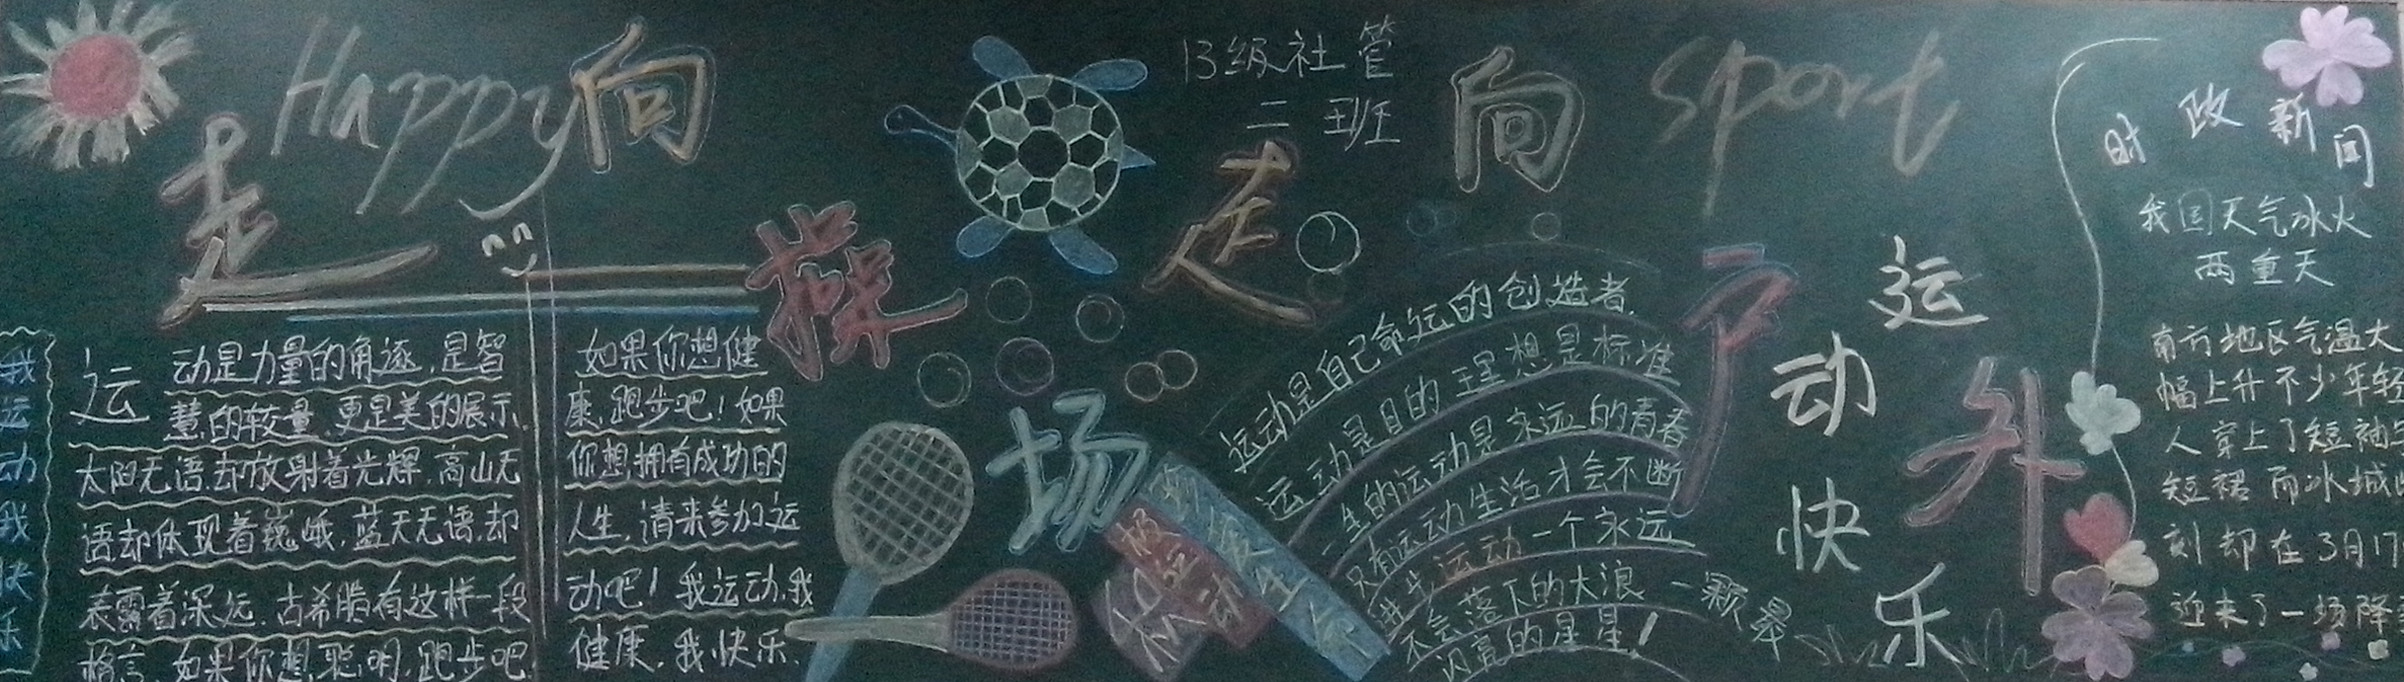 Happy
走向
操场
13级社管
二班
走向
户外
sport
我运动我快乐
运动是力量的角逐,是智
慧的较量,更是美的展示.
太阳无语,却放射着光辉,高山无
语却体现着巍峨.蓝天无语,却
表露着深远.古希腊有这样一段
格言,如果你想聪明,跑步吧!
如果你想健
康,跑步吧!如果
你想拥有成功的
人生,请来参加运
动吧!我运动,我
健康.我快乐.
运动是自己命运的创造者.
运动是目的理想是标准
一生的运动是永远的青春
只有运动生活才会不断
进步运动一个永远
不会落下的大浪一颗最
闪亮的星星!
运动快乐
时政新闻
我国天气冰火
两重天
南方地区气温大
幅上升不少年轻
人穿上了短袖
短裙而冰城
刻却在3月17
迎来了一场降